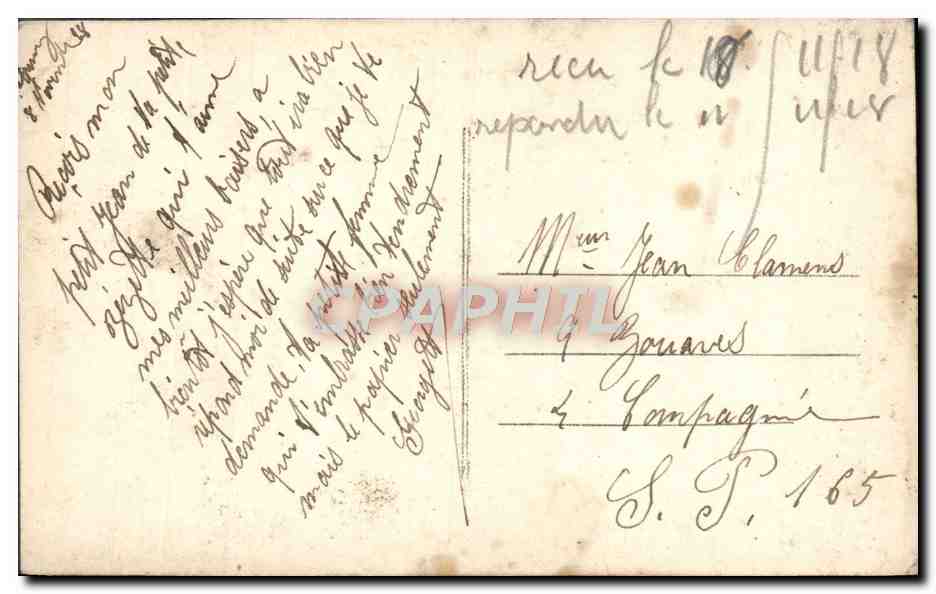 8 Novembre 18
Reçois mon
petit Jean de ta petite
zézette qui t'aime
mes meilleurs baisers, a
bientôt j'espère que tout ira bien
répond moi de suite sur ce que je te
demande, ta petite femme
qui t'embrasse bien tendrement
mais le papier seulement
reçu le 18/11/18
repondu le 11/11/18
Mr Jean Clamens
4 Zouaves
4 Compagnie
S. P. 165
CPAPHIL